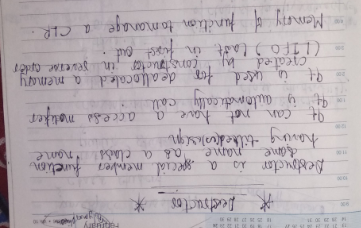 * Destructor *
Destructor is a special member function
same name as a class name
having tilde sign
It can not have a access modifier
It is automatically call
It is used for deallocated a memory
created by constructor in reverse order
(LIFO) Last in first out.
Memory of function to manage a